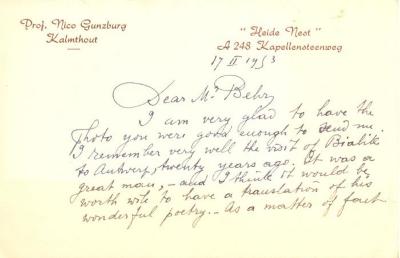 Prof. Nico Gunzburg
Kalmthout
"Heide Nest"
A 248 Kapellensteenweg
17 II 1953
Dear Mr Behr
I am very glad to have the
Photo you were good enough to send me.
I remember very well the visit of Bialik
to Antwerp, twenty years ago. It was a
great man, - and I think it would be
worth wile to have a translation of his
wonderful poetry. - As a matter of fact